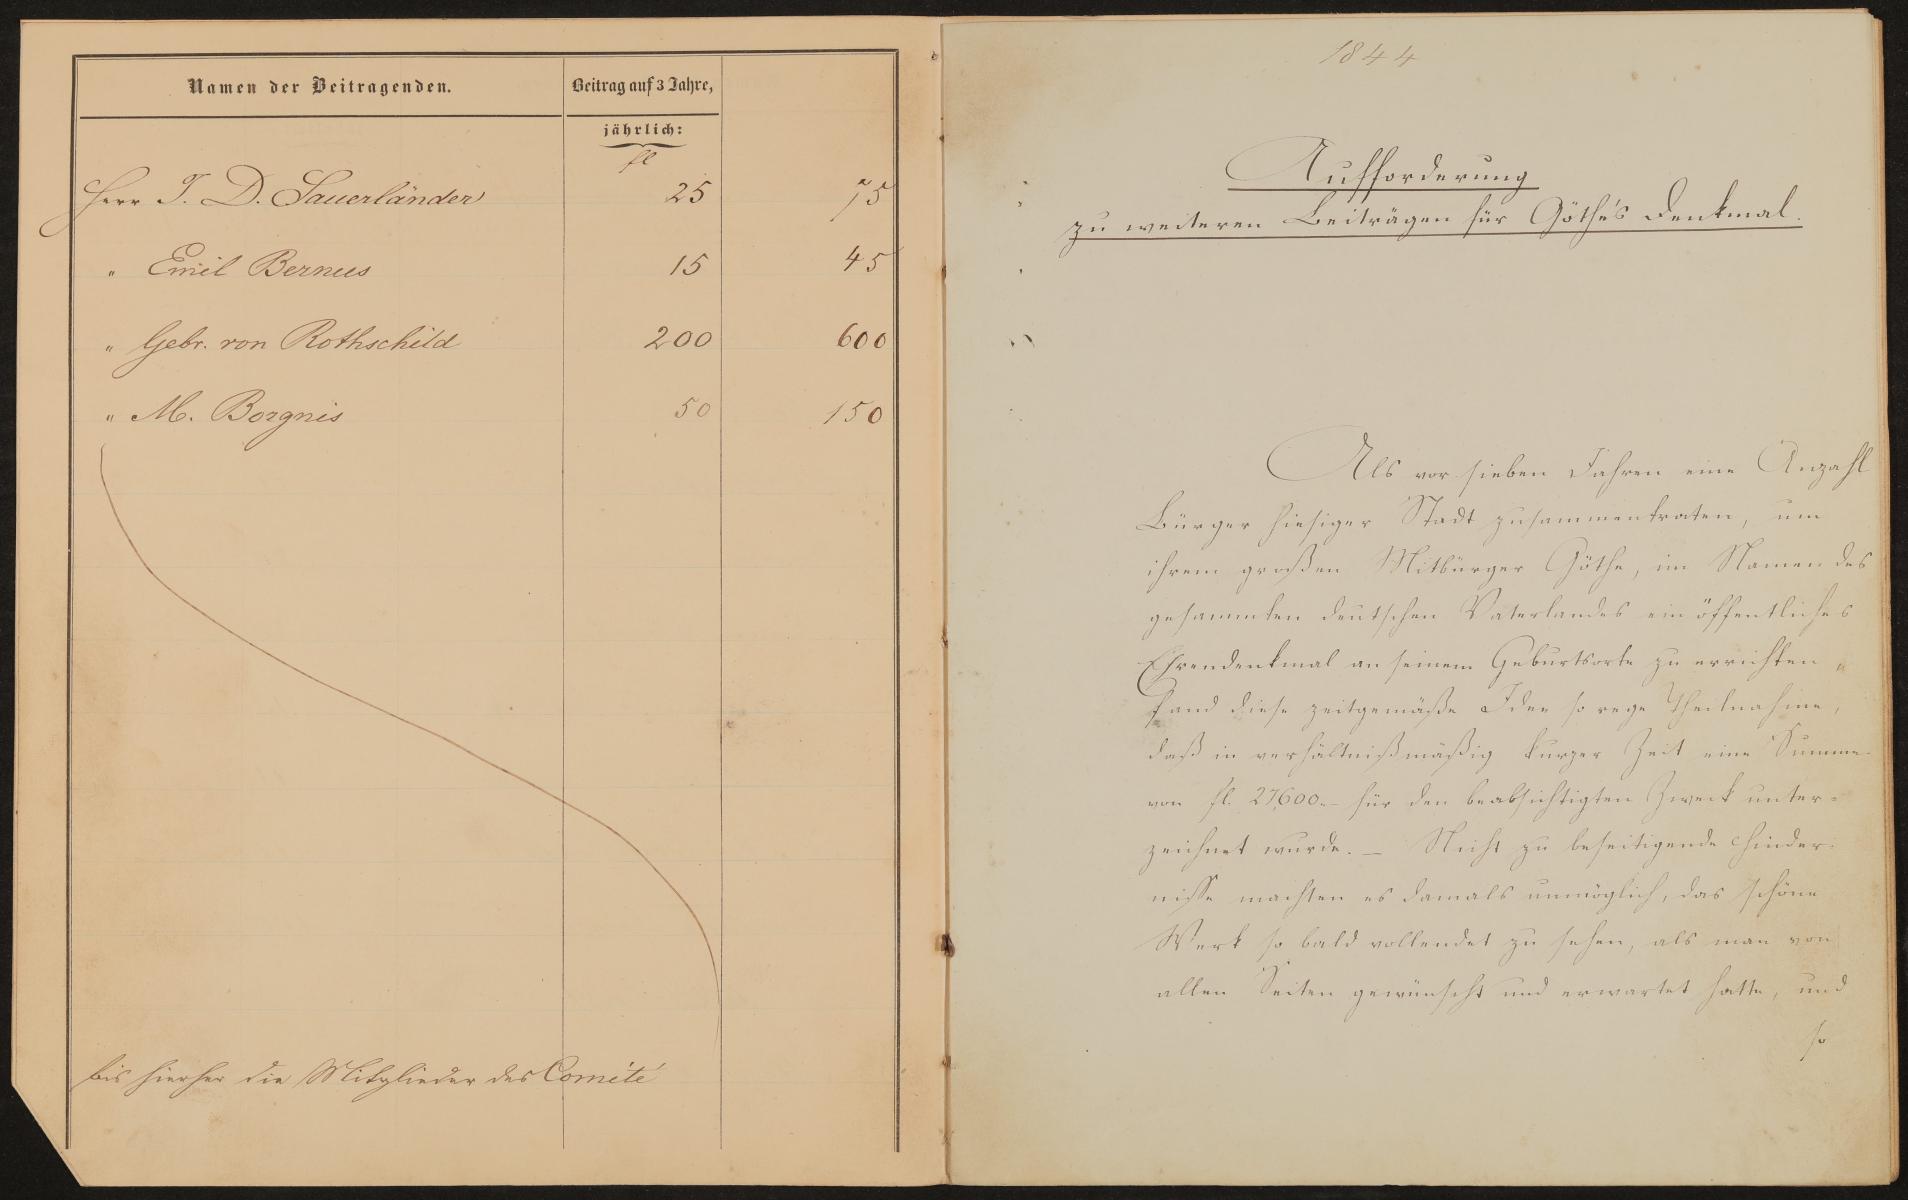 Namen der Beitragenden. Beitrag auf 3 Jahre,
jährlich:
fl
Herr J. D. Sauerländer 25 75
" Emil Bernus 15 45
" Gebr. von Rothschild 200 600
" M. Borgnis 50 150
bis hierher die Mitglieder des Comité
1844
Aufforderung
zu weiteren Beiträgen für Göthe's Denkmal.
Als vor sieben Jahren eine Anzahl
Bürger hiesiger Stadt zusammentraten, um
ihrem großen Mitbürger Göthe, im Namen des
gesammten deutschen Vaterlandes ein öffentliches
Ehrendenkmal an seinem Geburtsorte zu errichten,
fand diese zeitgemäße Idee so rege Theilnahme,
daß in verhältnißmäßig kurzer Zeit eine Summe
von fl. 27,600.- für den beabsichtigten Zweck unter-
zeichnet wurde. – Nicht zu beseitigende Hinder-
nisse machten es damals unmöglich, das schöne
Werk so bald vollendet zu sehen, als man von
allen Seiten gewünscht und erwartet hatte, und
so